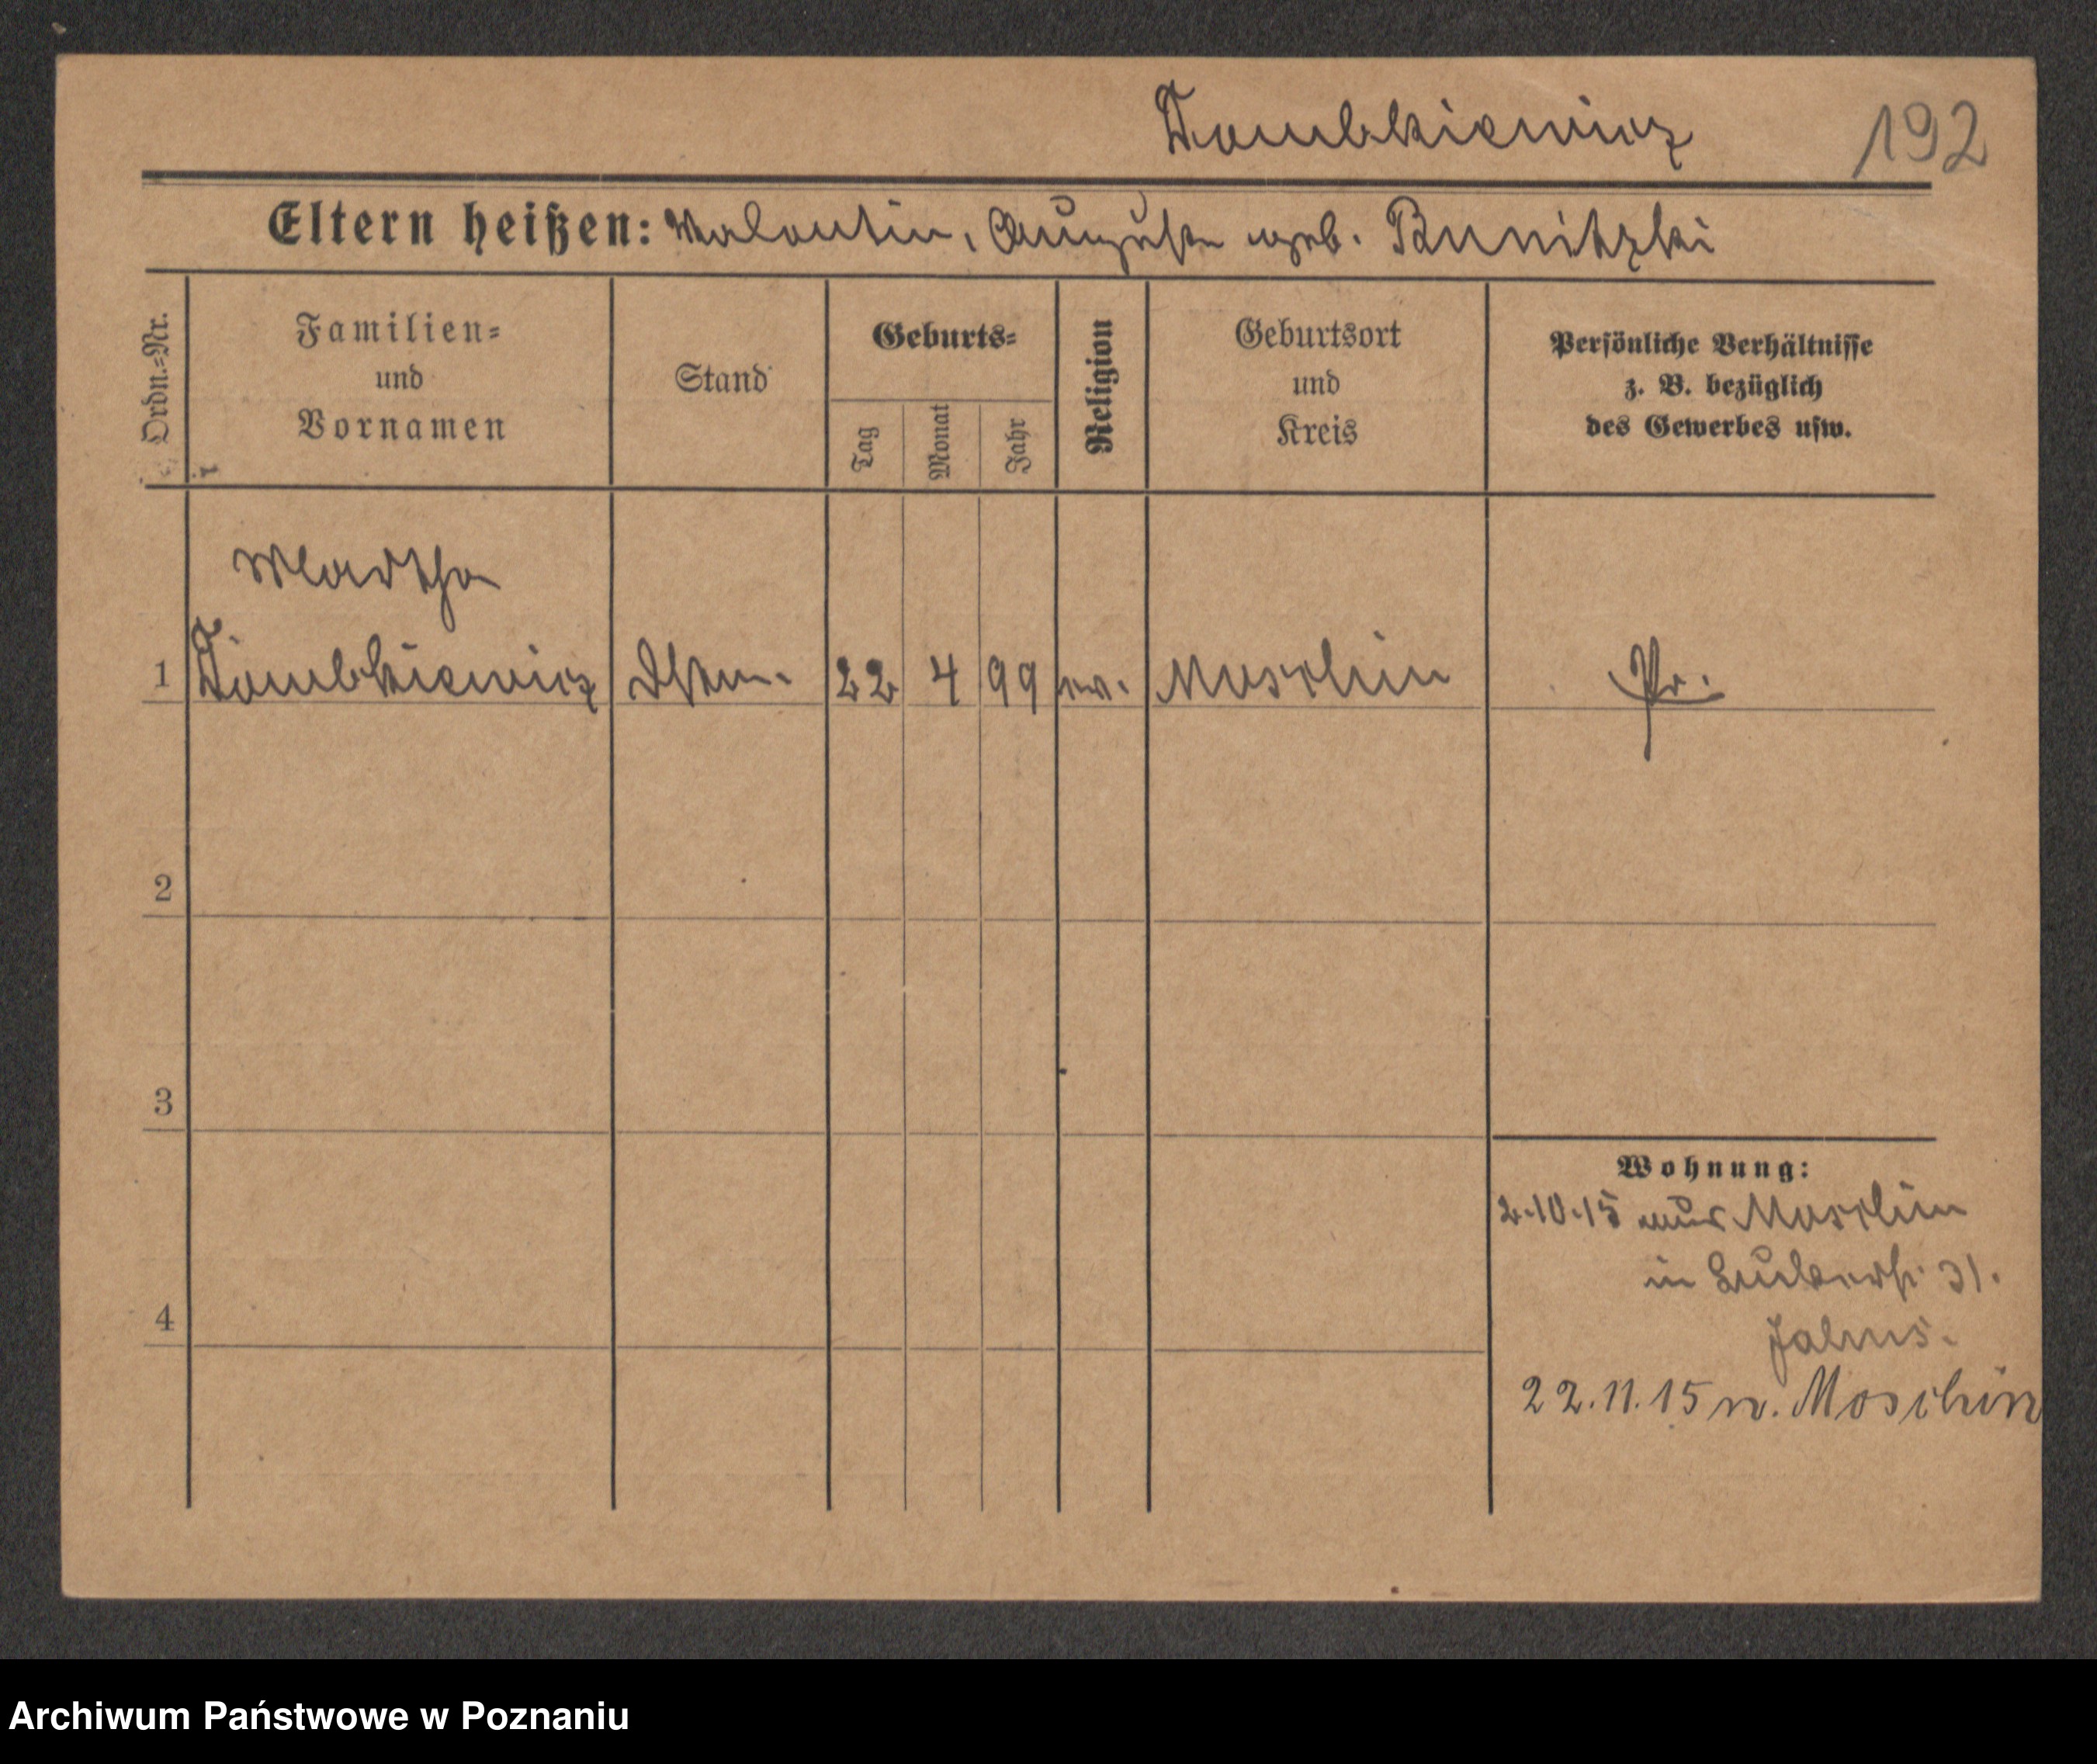 Dombkiewicz 192
Eltern heißen: Valentin, Auguste geb. Runitzki
Ordn.=Nr.
Familien=
und
Vornamen
Stand
Geburts=
Tag
Monat
Jahr
Religion
Geburtsort
und
Kreis
Persönliche Verhältnisse
z. B. bezüglich
des Gewerbes usw.
Martha
1 Dombkiewicz 22 4 99 ev. Moschin Pr.
2
3
4
Wohnung:
2.10.15 aus Moschin
in 31.
22.11.15 n. Moschin
Archiwum Państwowe w Poznaniu